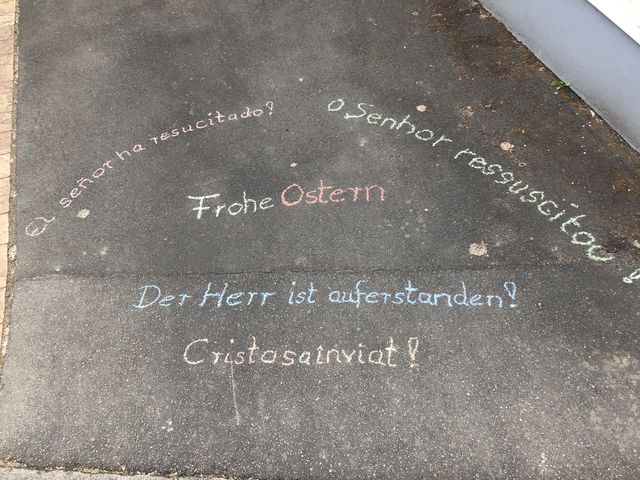 El señor ha resucitado?
O Senhor ressuscitou!
Frohe Ostern
Der Herr ist auferstanden!
Cristosainviat!